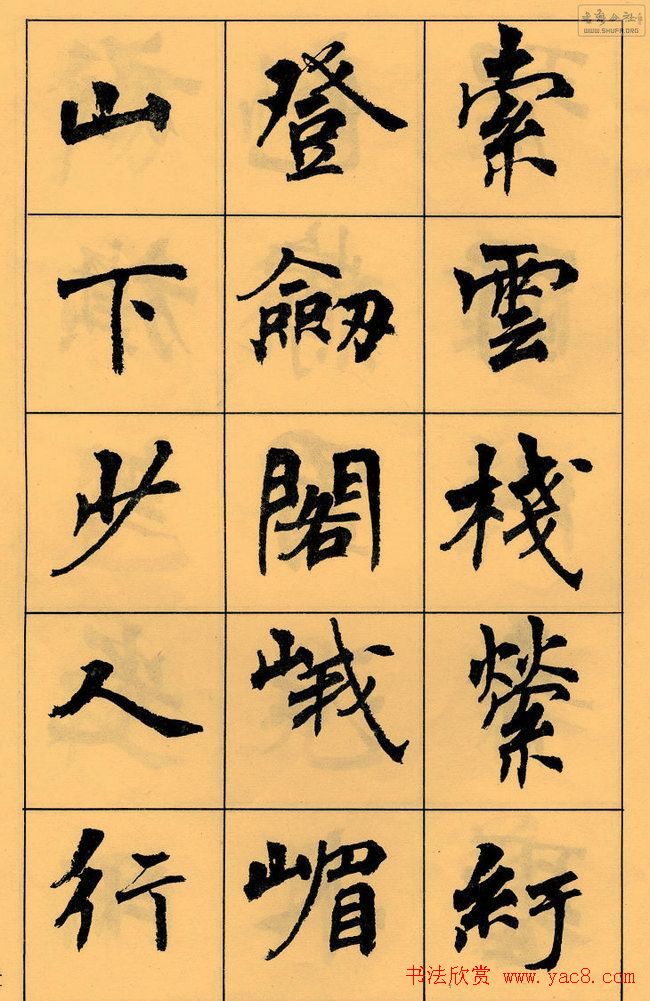 索雲棧縈紆
登劒閣峨嵋
山下少人行
书法欣赏 www.yac8.com
WWW.SHUFA.ORG